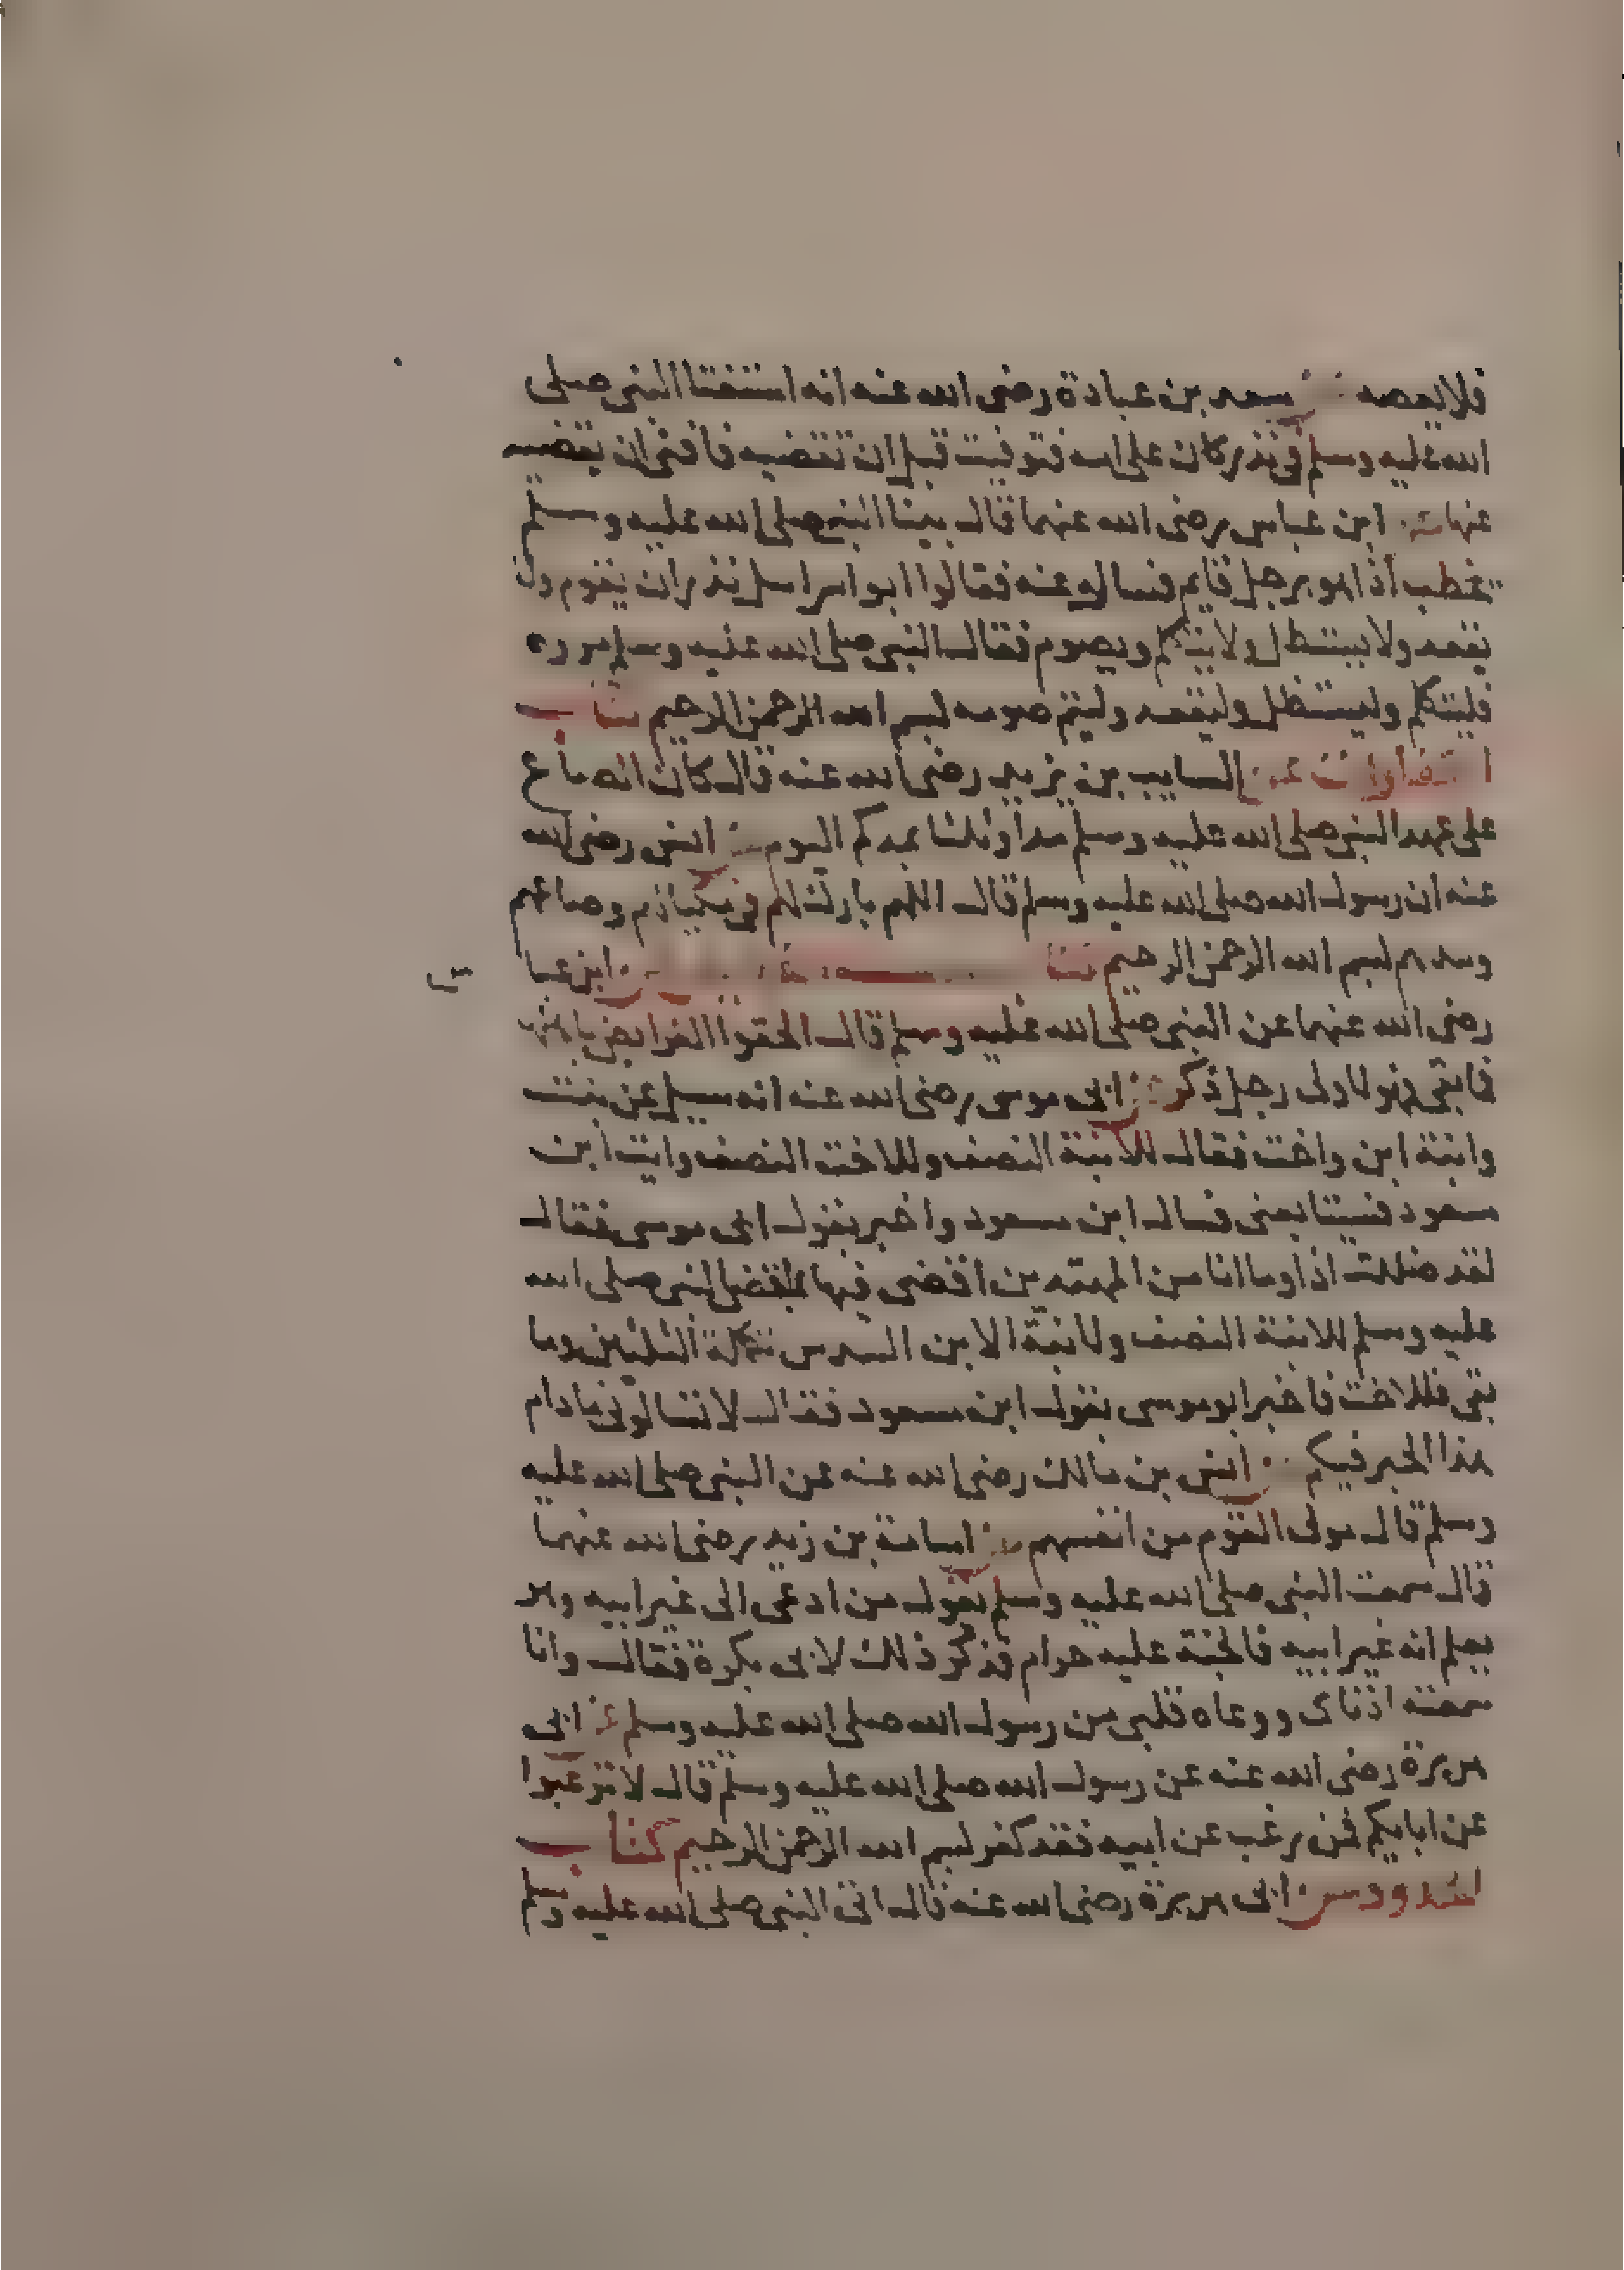 فلا يعصه عن سعد بن عبادة رضى الله عنه انه استفتا النبى صلى
الله عليه وسلم فى نذر كان على امه فتوفيت قبل ان تقضيه فافتى ان يقضيه
عنها عن ابن عباس رضى الله عنهما قال بينا النبى صلى الله عليه وسلم
يخطب اذا هو برجل قايم فسال عنه فقالوا ابو اسراسل نذر ان يقوم ولا
يقعد ولا يستظل ولا يتكلم ويصوم فقال النبى صلى الله عليه وسلم مروه
فليتكلم وليستظل وليقعد وليتم صومه بسم الله الرحمن الرحيم كتاب
الكفارات عن السايب بن يزيد رضى الله عنه قال كان الصاع
على عهد النبى صلى الله عليه وسلم مدا وثلثا بمدكم اليوم عن انس رضى الله
عنه ان رسول الله صلى الله عليه وسلم قال اللهم بارك لهم فى مكيالهم وصاعهم
ومدهم بسم الله الرحمن الرحيم كتاب عن ابن عباس
رضى الله عنهما عن النبى صلى الله عليه وسلم قال الحقوا الفرايض باهلها
فما بقى فهو لاولى رجل ذكر عن ابى موسى رضى الله عنه انه سيل عن بنت
وابنة ابن واخت فقال للابنة النصف وللاخت النصف وايت ابن
مسعود فسيتابعنى فسال ابن مسعود واخبر بقول ابى موسى فقال
لقد ضللت اذا وما انا من المهتدين اقضى فيها بما قضى النبى صلى الله
عليه وسلم للابنة النصف ولابنة الابن السدس تكملة الثلثين وما
بقى فللاخت فاخبر ابو موسى بقول ابن مسعود فقال لا تسالونى مادام
هذا الحبر فيكم عن انس بن مالك رضى الله عنه عن النبى صلى الله عليه
وسلم قال مولى القوم من انفسهم عن اسامة بن زيد رضى الله عنهما
قال سمعت النبى صلى الله عليه وسلم يقول من ادعى الى غير ابيه وهو
يعلم انه غير ابيه فالجنة عليه حرام فذكر ذلك لابى بكرة فقال وانا
سمعته اذناى ووعاه قلبى من رسول الله صلى الله عليه وسلم عن ابى
هريرة رضى الله عنه عن رسول الله صلى الله عليه وسلم قال لا ترغبوا
عن ابايكم فمن رغب عن ابيه فقد كفر بسم الله الرحمن الرحيم كتاب
الحدود عن ابى هريرة رضى الله عنه قال اتى النبى صلى الله عليه وسلم